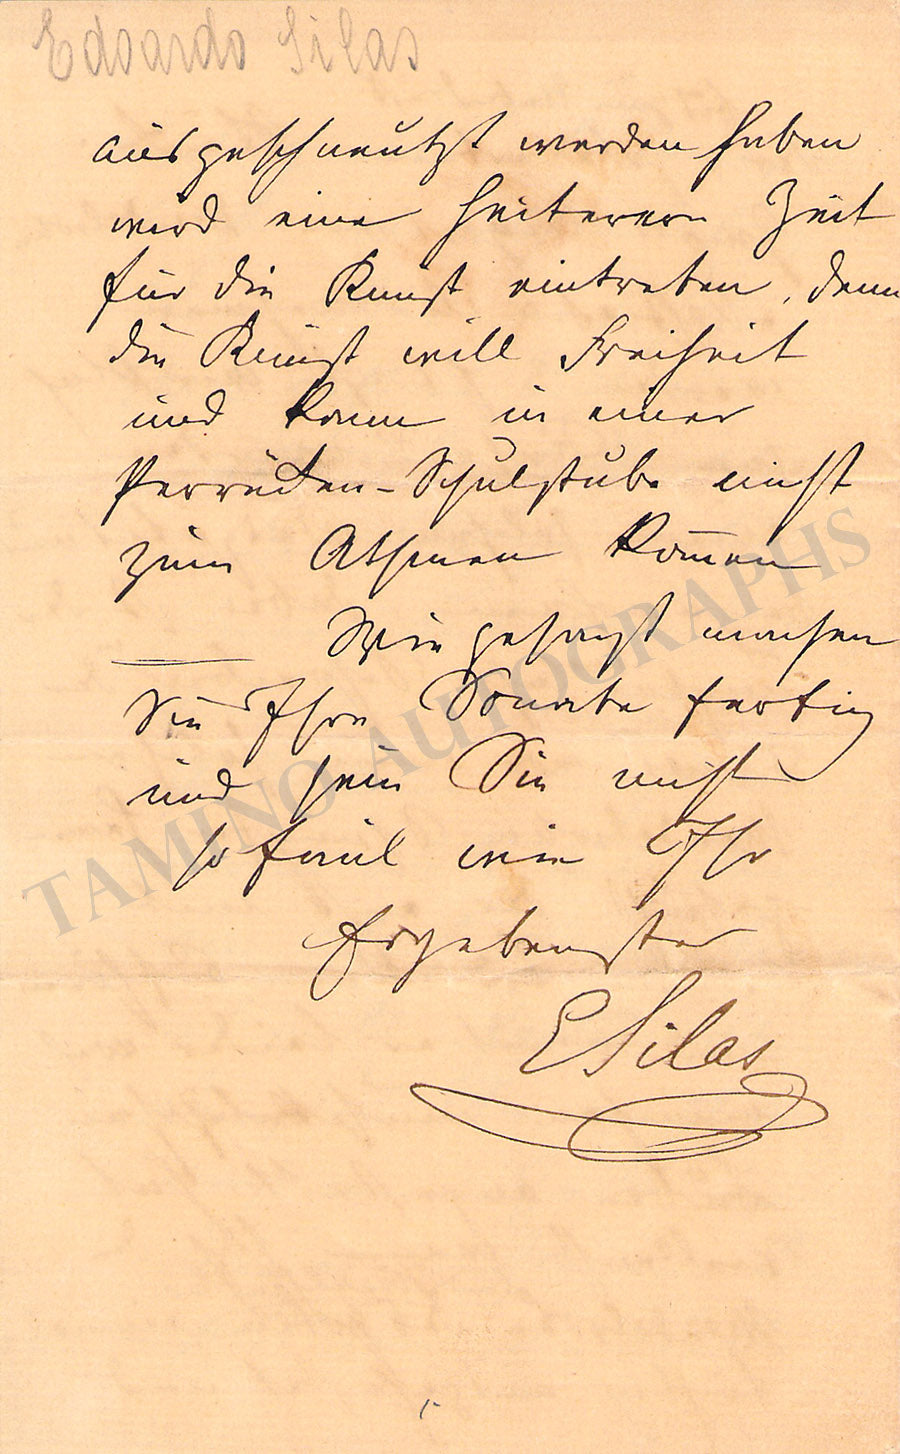 Edoardo Silas
ausgeschneutzt werden haben
wird eine heiterere Zeit
für die Kunst eintreten, denn
die Kunst will Freiheit
und kann in einer
Perrücken-Schulstube nicht
zum Athmen kom̅en
Wie gesagt machen
Sie Ihre Sonate fertig
und sein Sie nicht
so faul wie Ihr
Ergebenster
E Silas
TAMINO AUTOGRAPHS